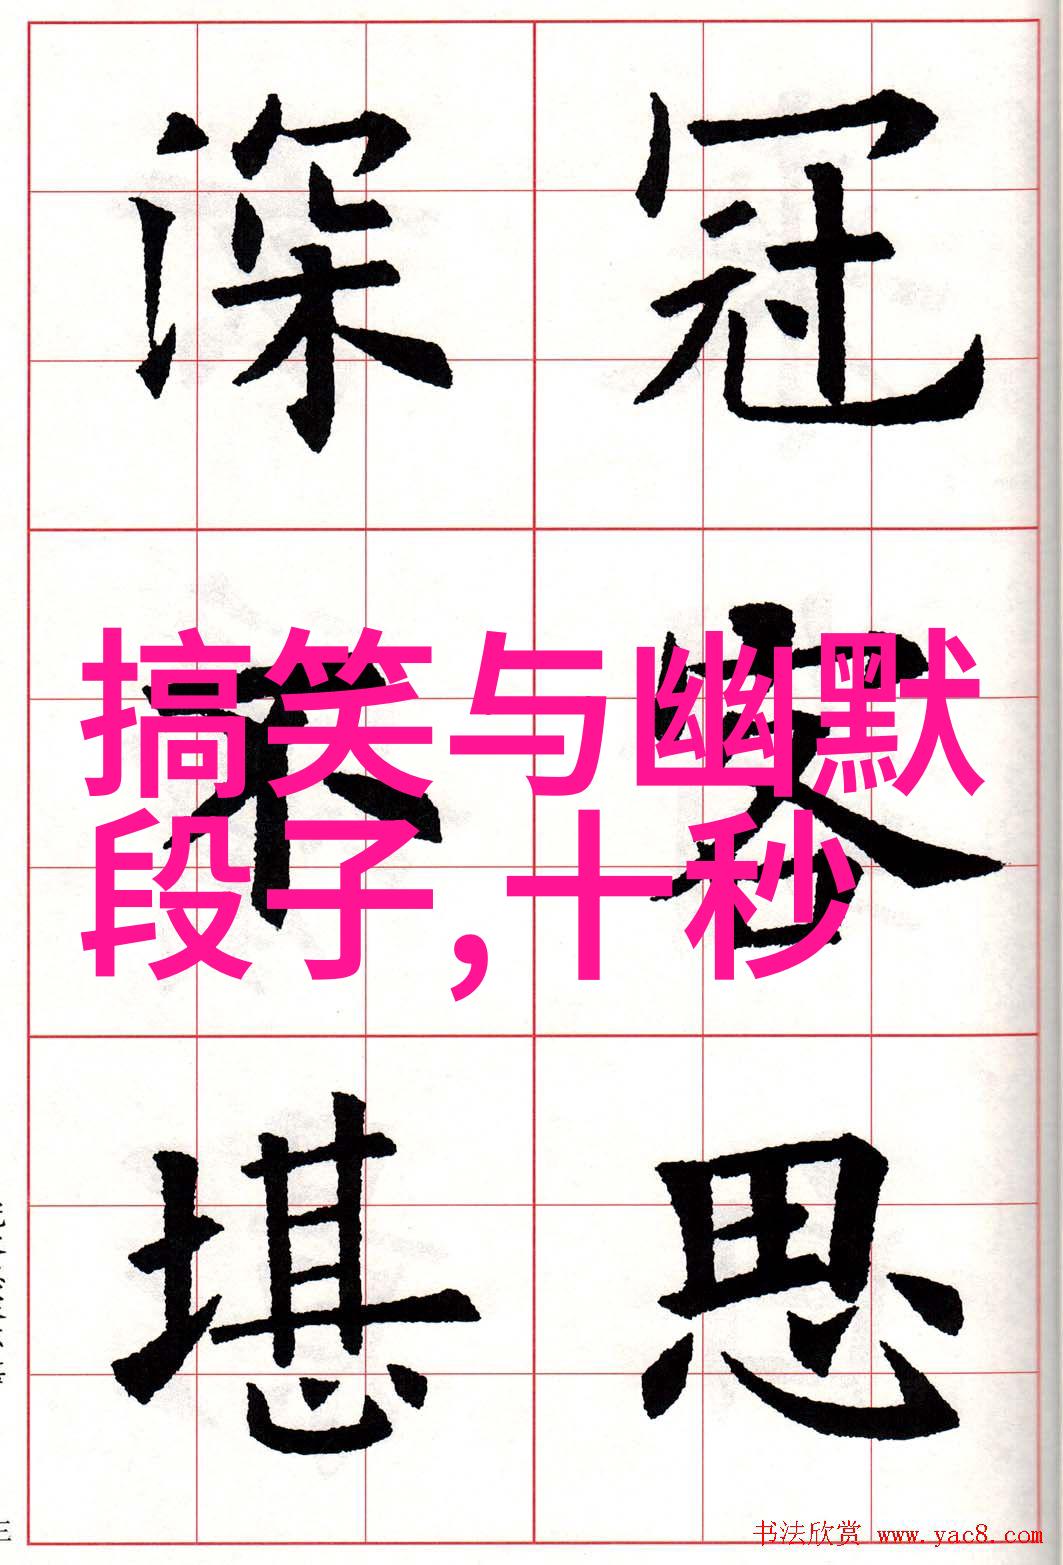 冠客思
深不堪
搞笑与幽默
段子,十秒
书法欣赏 www.yac8.com